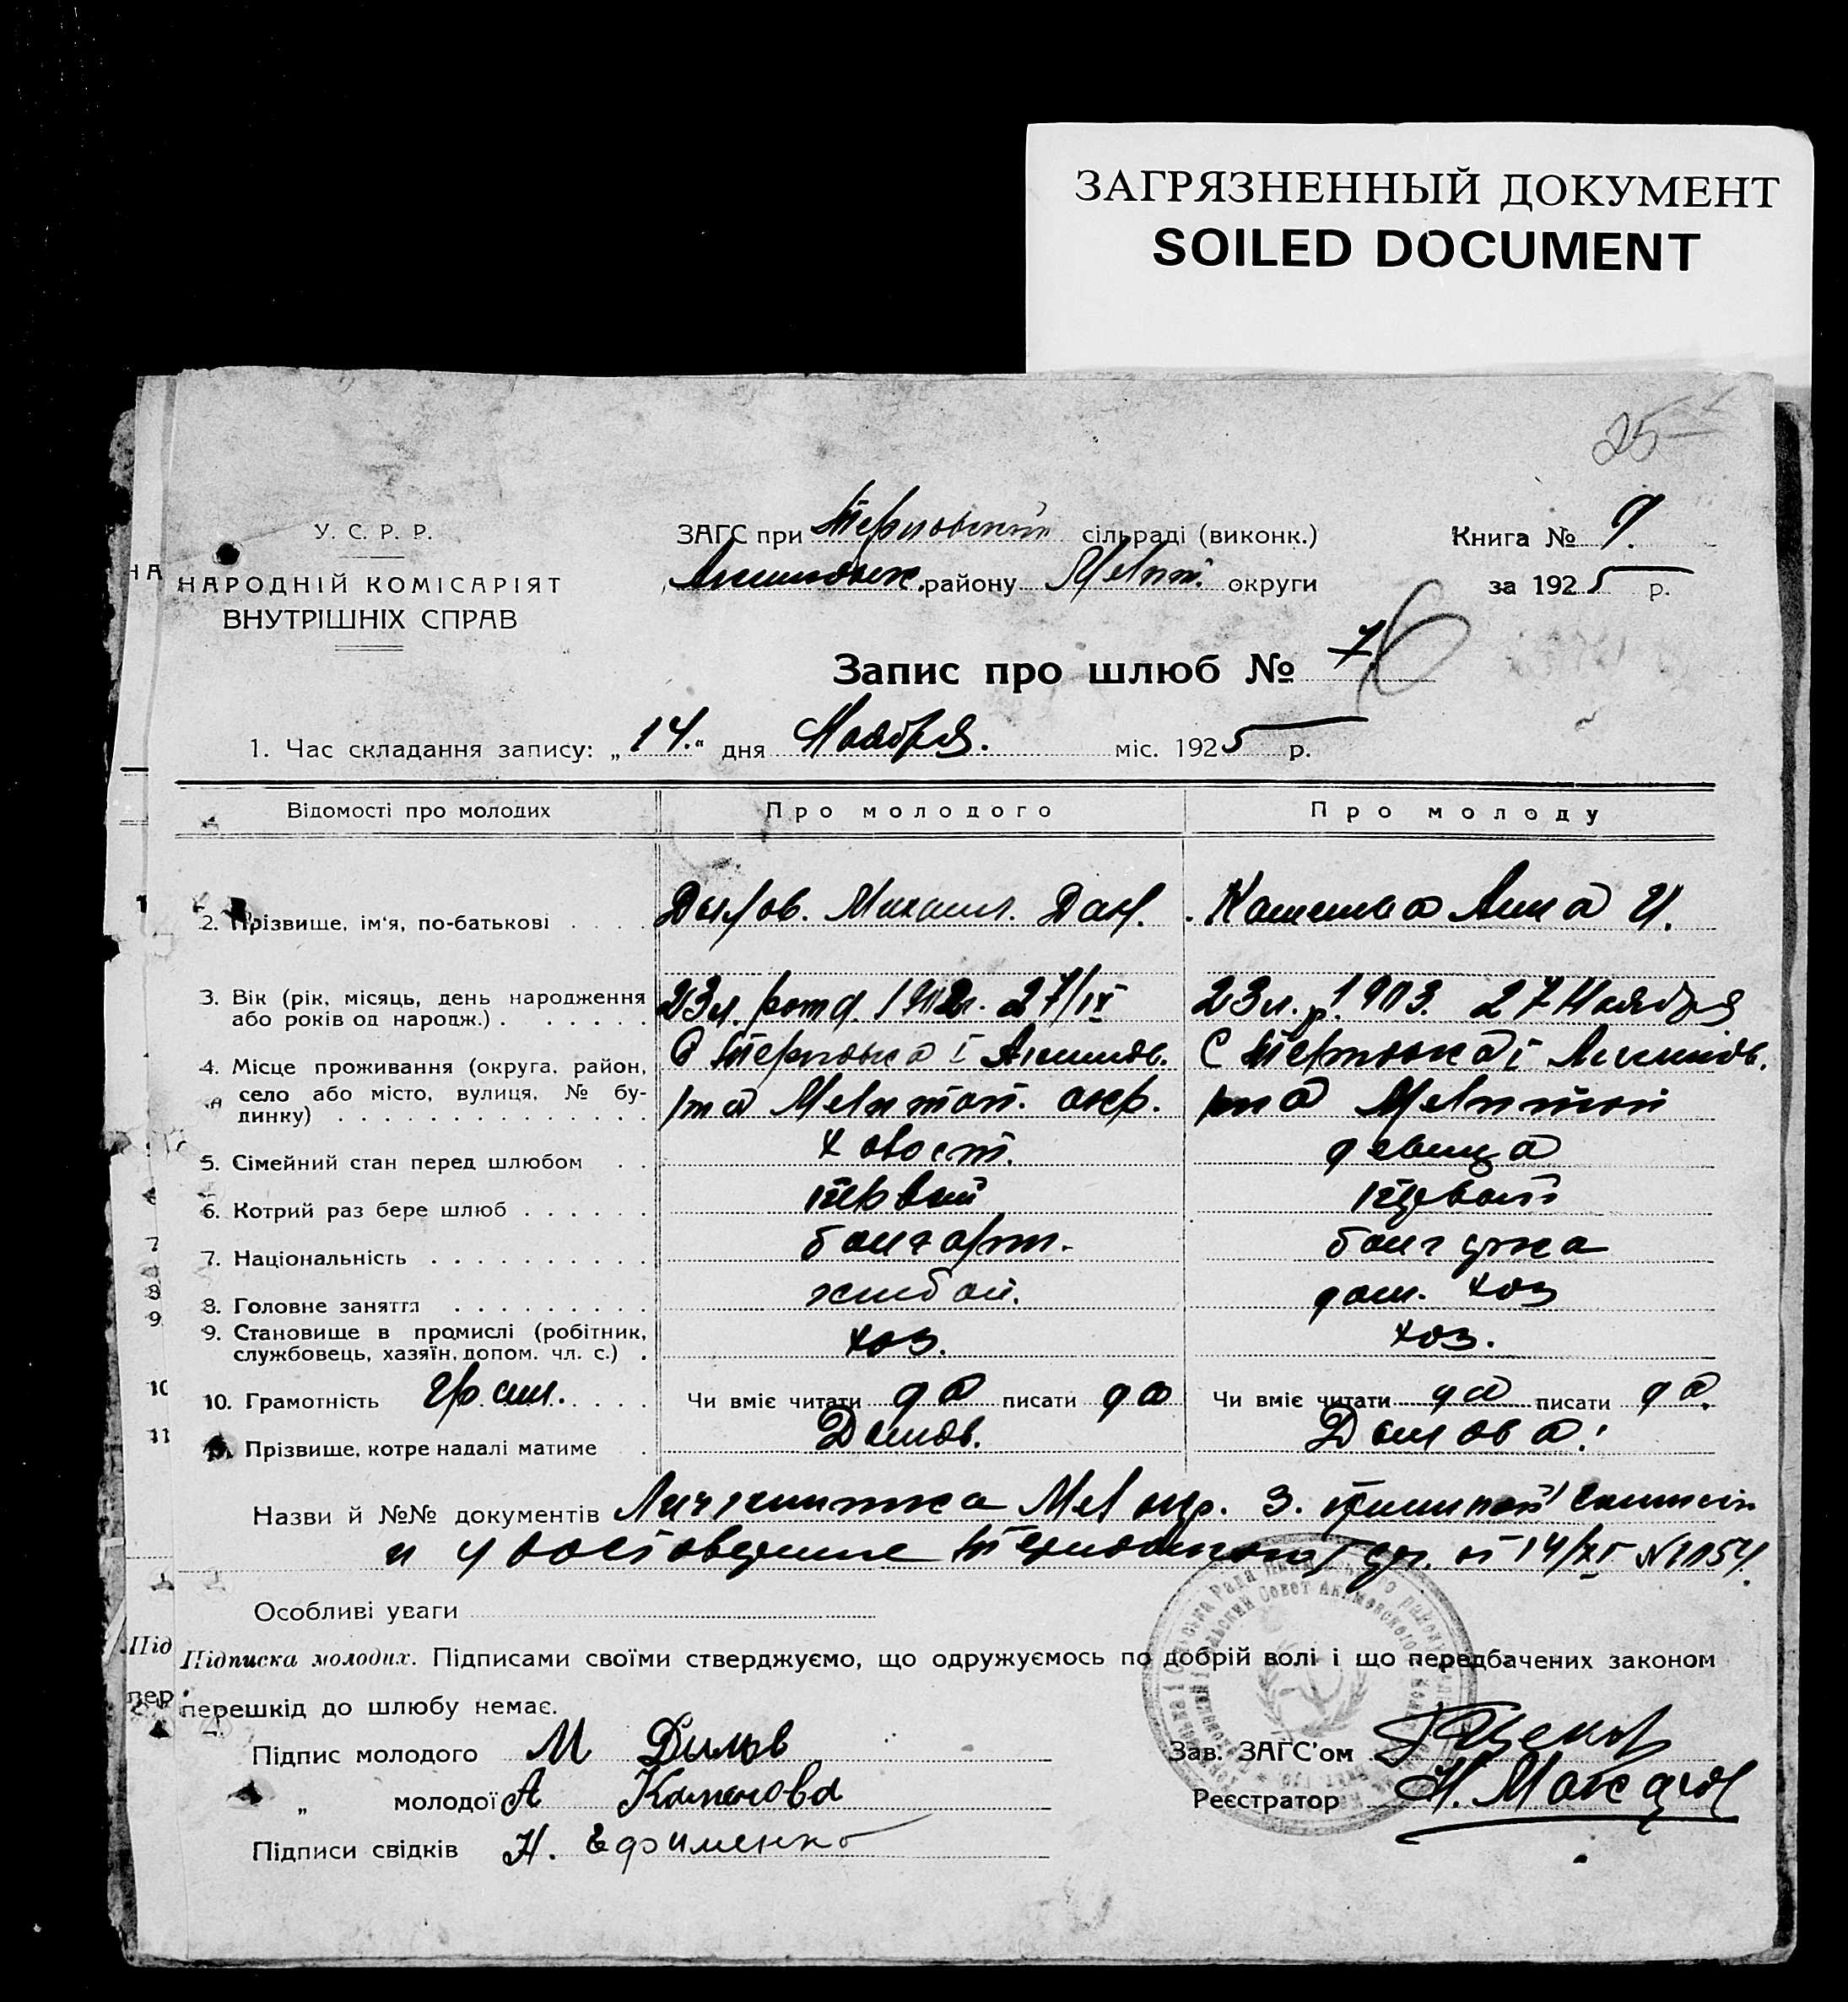 ЗАГРЯЗНЕННЫЙ ДОКУМЕНТ
SOILED DOCUMENT
25
У. С. Р. Р.
НАРОДНІЙ КОМІСАРІЯТ
ВНУТРІШНІХ СПРАВ
ЗАГС при сільраді (виконк.)
району Мелит. округи
Книга № 9.
за 1925 р.
Запис про шлюб № 7. 6
1. Час складання запису: „14." дня Ноября. міс. 1925 р.
Відомості про молодих Про молодого Про молоду
2. Прізвище, ім'я, по-батькові Михаил. Дан. Каменова Анна И.
3. Вік (рік, місяць, день народження
або років од народж.) 23 л. 27/IX 23 л. р. 1903. 27 Ноября
4. Місце проживання (округа, район,
село або місто, вулиця, № бу-
динку) С Терновка I Акимов. С Терновка I Акимов.
р-на Мелитоп. окр. р-на Мелитоп
5. Сімейний стан перед шлюбом холост. девица
6. Котрий раз бере шлюб первый первый
7. Національність болгарин. болгарка
8. Головне заняття хлебоп. дом. хоз
9. Становище в промислі (робітник,
службовець, хазяїн, допом. чл. с.) хоз. хоз.
10. Грамотність Грам. Чи вміє читати да писати да Чи вміє читати да писати да.
11. Прізвище, котре надалі матиме Дымов. Дымова.
Назви й №№ документів Мел окр.
и удостоверение от 14/XI №1154.
Особливі уваги
Підписка молодих. Підписами своїми стверджуємо, що одружуємось по добрій волі і що передбачених законом
перешкід до шлюбу немає.
Підпис молодого М Дымов
„ молодої А Каменова
Підписи свідків Н. Ефименко
Зав. ЗАГС'ом
Реєстратор Н.